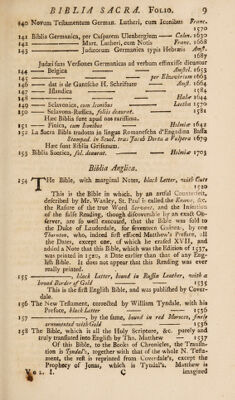 BIBLIA SACRA. FOLIO. 9
140 Novum Testamentum German. Lutheri, cum Iconibus Franc.
1570
141 Biblia Germanica, per Casparum Ulenbergium — Colon. 1630
142 —— Mart. Lutheri, cum Notis Franc. 1668
143 —— Judæorum Germanica typis Hebraeis Amst.
1687
Judæi suas Versiones Germanicas ad verbum effinxisse dicuntur
144 — Belgica — Amstel. 1653
145 — — per Elzevirium 1663
146 — dat is de Gantsche H. Schrifture — Amst. 1664
147 — Islandica — 1584
148 — — Holæ 1644
149 — Sclavonica, cum Iconibus — 1570
150 — Sclavono-Russica, foliis deaurat. 1581
Hæc Biblia sunt quoad nos rarissima.
151 — Finica, cum Iconibus — Holmiæ 1642
152 La Sacra Bibla tradotta in lingua Romanescha d'Engadina Bassa
Stampad. in Scuol, tras Jacob Dorta a Vulpera 1679
Hæc sunt Biblia Grisonum.
153 Biblia Suetica, fol. deaurat. — Holmiæ 1703
Biblia Anglica.
154 THe Bible, with marginal Notes, black Letter, with Cuts
1520
This is the Bible in which, by an artful Counterfeit,
described by Mr. Wanley, St. Paul is called the Knave, &c.
the Rasure of the true Word Servant, and the Insertion
of the false Reading, though discoverable by an exact Observer,
are so well executed, that the Bible was sold to
the Duke of Lauderdale, for seventeen Guineas, by one
Thornton, who, indeed first effaced Matthew's Preface, all
the Dates, except one, of which he erased XVII, and
added a Note that this Bible, which was the Edition of 1537,
was printed in 1520, a Date earlier than that of any English
Bible. It does not appear that this Reading was ever
really printed.
155 —— black Letter, bound in Russia Leather, with a
broad Border of Gold — 1535
This is the first English Bible, and was published by Coverdale.
156 The New Testament, corrected by William Tyndale, with his
Preface, black Letter — 1536
157 —— by the same, bound in red Morocco, finely
ornamented with Gold — 1536
158 The Bible, which is all the Holy Scripture, &c. purely and
truly translated into English by Tho. Matthew — 1537
Of this Bible, to the Books of Chronicles, the Translation
is Tyndal's, together with that of the whole N. Testament,
the rest is reprinted from Coverdale's, except the
Prophecy of Jonas, which is Tyndal's. Matthew is
VOL. I. C imagined